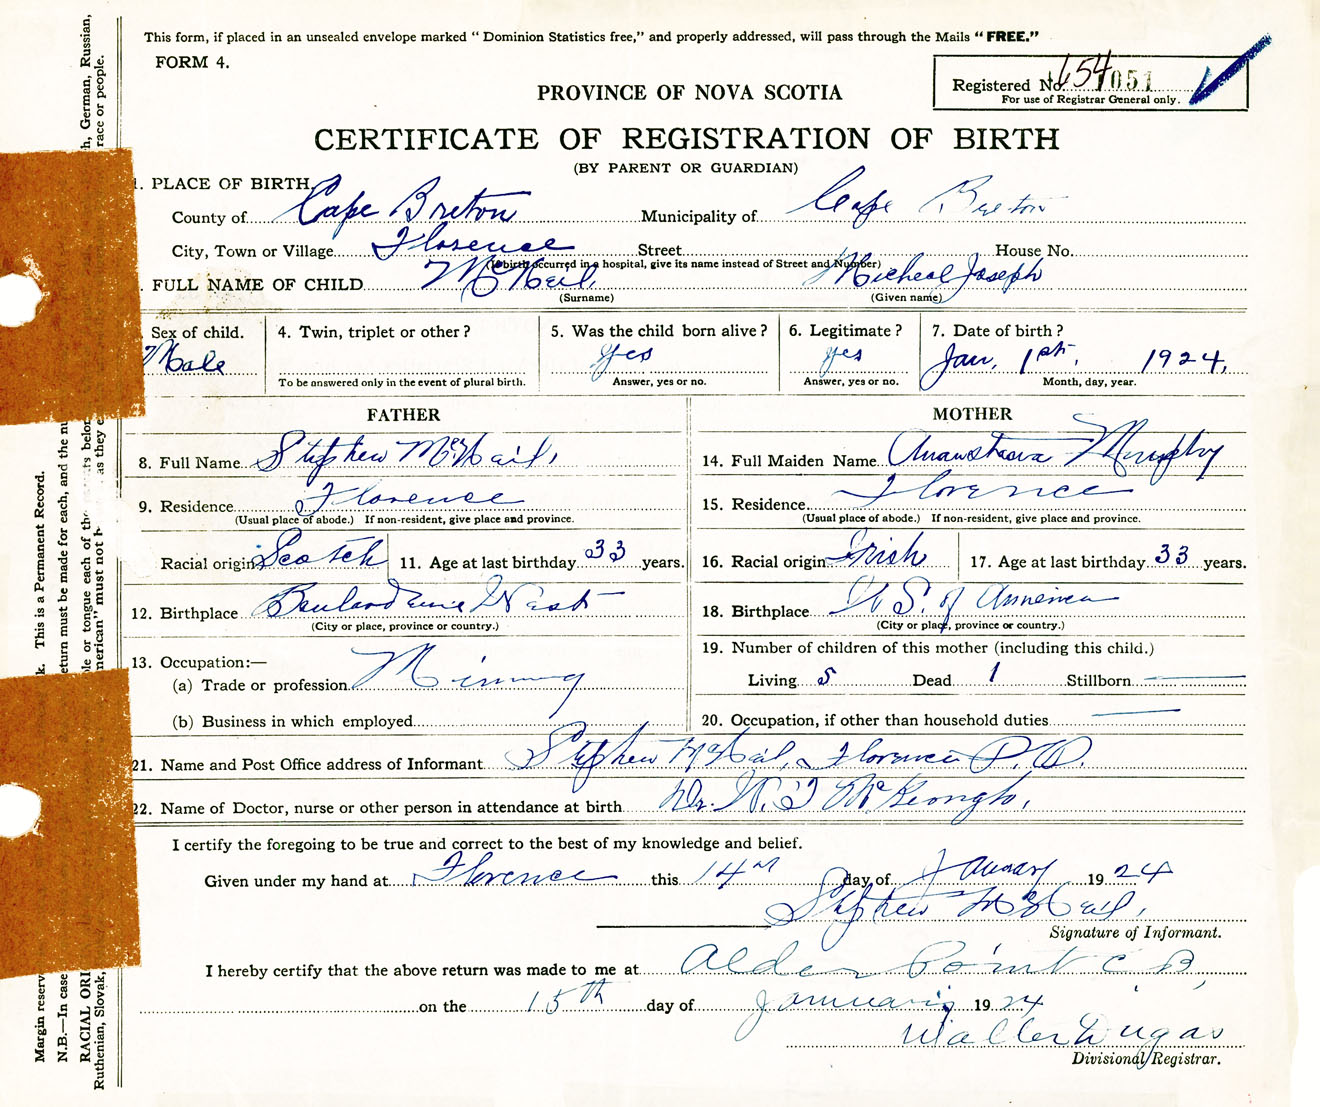 This form, if placed in an unsealed envelope marked "Dominion Statistics free," and properly addressed, will pass through the Mails "FREE."
FORM 4.
Registered No. 654 1051
For use of Registrar General only.
PROVINCE OF NOVA SCOTIA
CERTIFICATE OF REGISTRATION OF BIRTH
(BY PARENT OR GUARDIAN)
1. PLACE OF BIRTH
County of Cape Breton Municipality of Cape Breton
City, Town or Village Florence Street House No.
(If birth occurred in a hospital, give its name instead of Street and Number)
FULL NAME OF CHILD McNeil, Micheal Joseph
(Surname) (Given name)
Sex of child. 4. Twin, triplet or other? 5. Was the child born alive? 6. Legitimate? 7. Date of birth?
Male yes yes Jan, 1st, 1924,
To be answered only in the event of plural birth. Answer, yes or no. Answer, yes or no. Month, day, year.
FATHER MOTHER
8. Full Name Stephen McNeil, 14. Full Maiden Name Murphy
9. Residence Florence 15. Residence Florence
(Usual place of abode.) If non-resident, give place and province. (Usual place of abode.) If non-resident, give place and province.
Racial origin Scotch 11. Age at last birthday 33 years. 16. Racial origin Irish 17. Age at last birthday 33 years.
12. Birthplace West 18. Birthplace U S. of America
(City or place, province or country.) (City or place, province or country.)
13. Occupation:— 19. Number of children of this mother (including this child.)
(a) Trade or profession Mining Living 5 Dead 1 Stillborn —
(b) Business in which employed 20. Occupation, if other than household duties —
21. Name and Post Office address of Informant Stephen McNeil, Florence P.O.
22. Name of Doctor, nurse or other person in attendance at birth Dr. McKeough,
I certify the foregoing to be true and correct to the best of my knowledge and belief.
Given under my hand at Florence this 14th day of January 1924
Stephen McNeil,
Signature of Informant.
I hereby certify that the above return was made to me at Alder Point C B,
on the 15th day of January 1924
Walter Dugas
Divisional Registrar.
Margin reserv k. This is a Permanent Record.
N.B.—In case eturn must be made for each, and the nu
RACIAL ORI le or tongue each of the ts belo h, German, Russian,
Ruthenian, Slovak, merican" must not as they race or people.